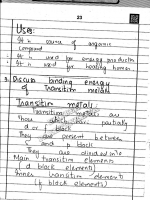 23
Uses:
It is source of organic
compound
It is used for energy production
It is used for heating homes
3. Discuss binding energy
of transition metals
Transition metals:
Transition metals are
those which have partially
d or f block
They are present between
s and p block
They are divided into
Main transition elements
(d block elements)
Inner transition elements
(f block elements)